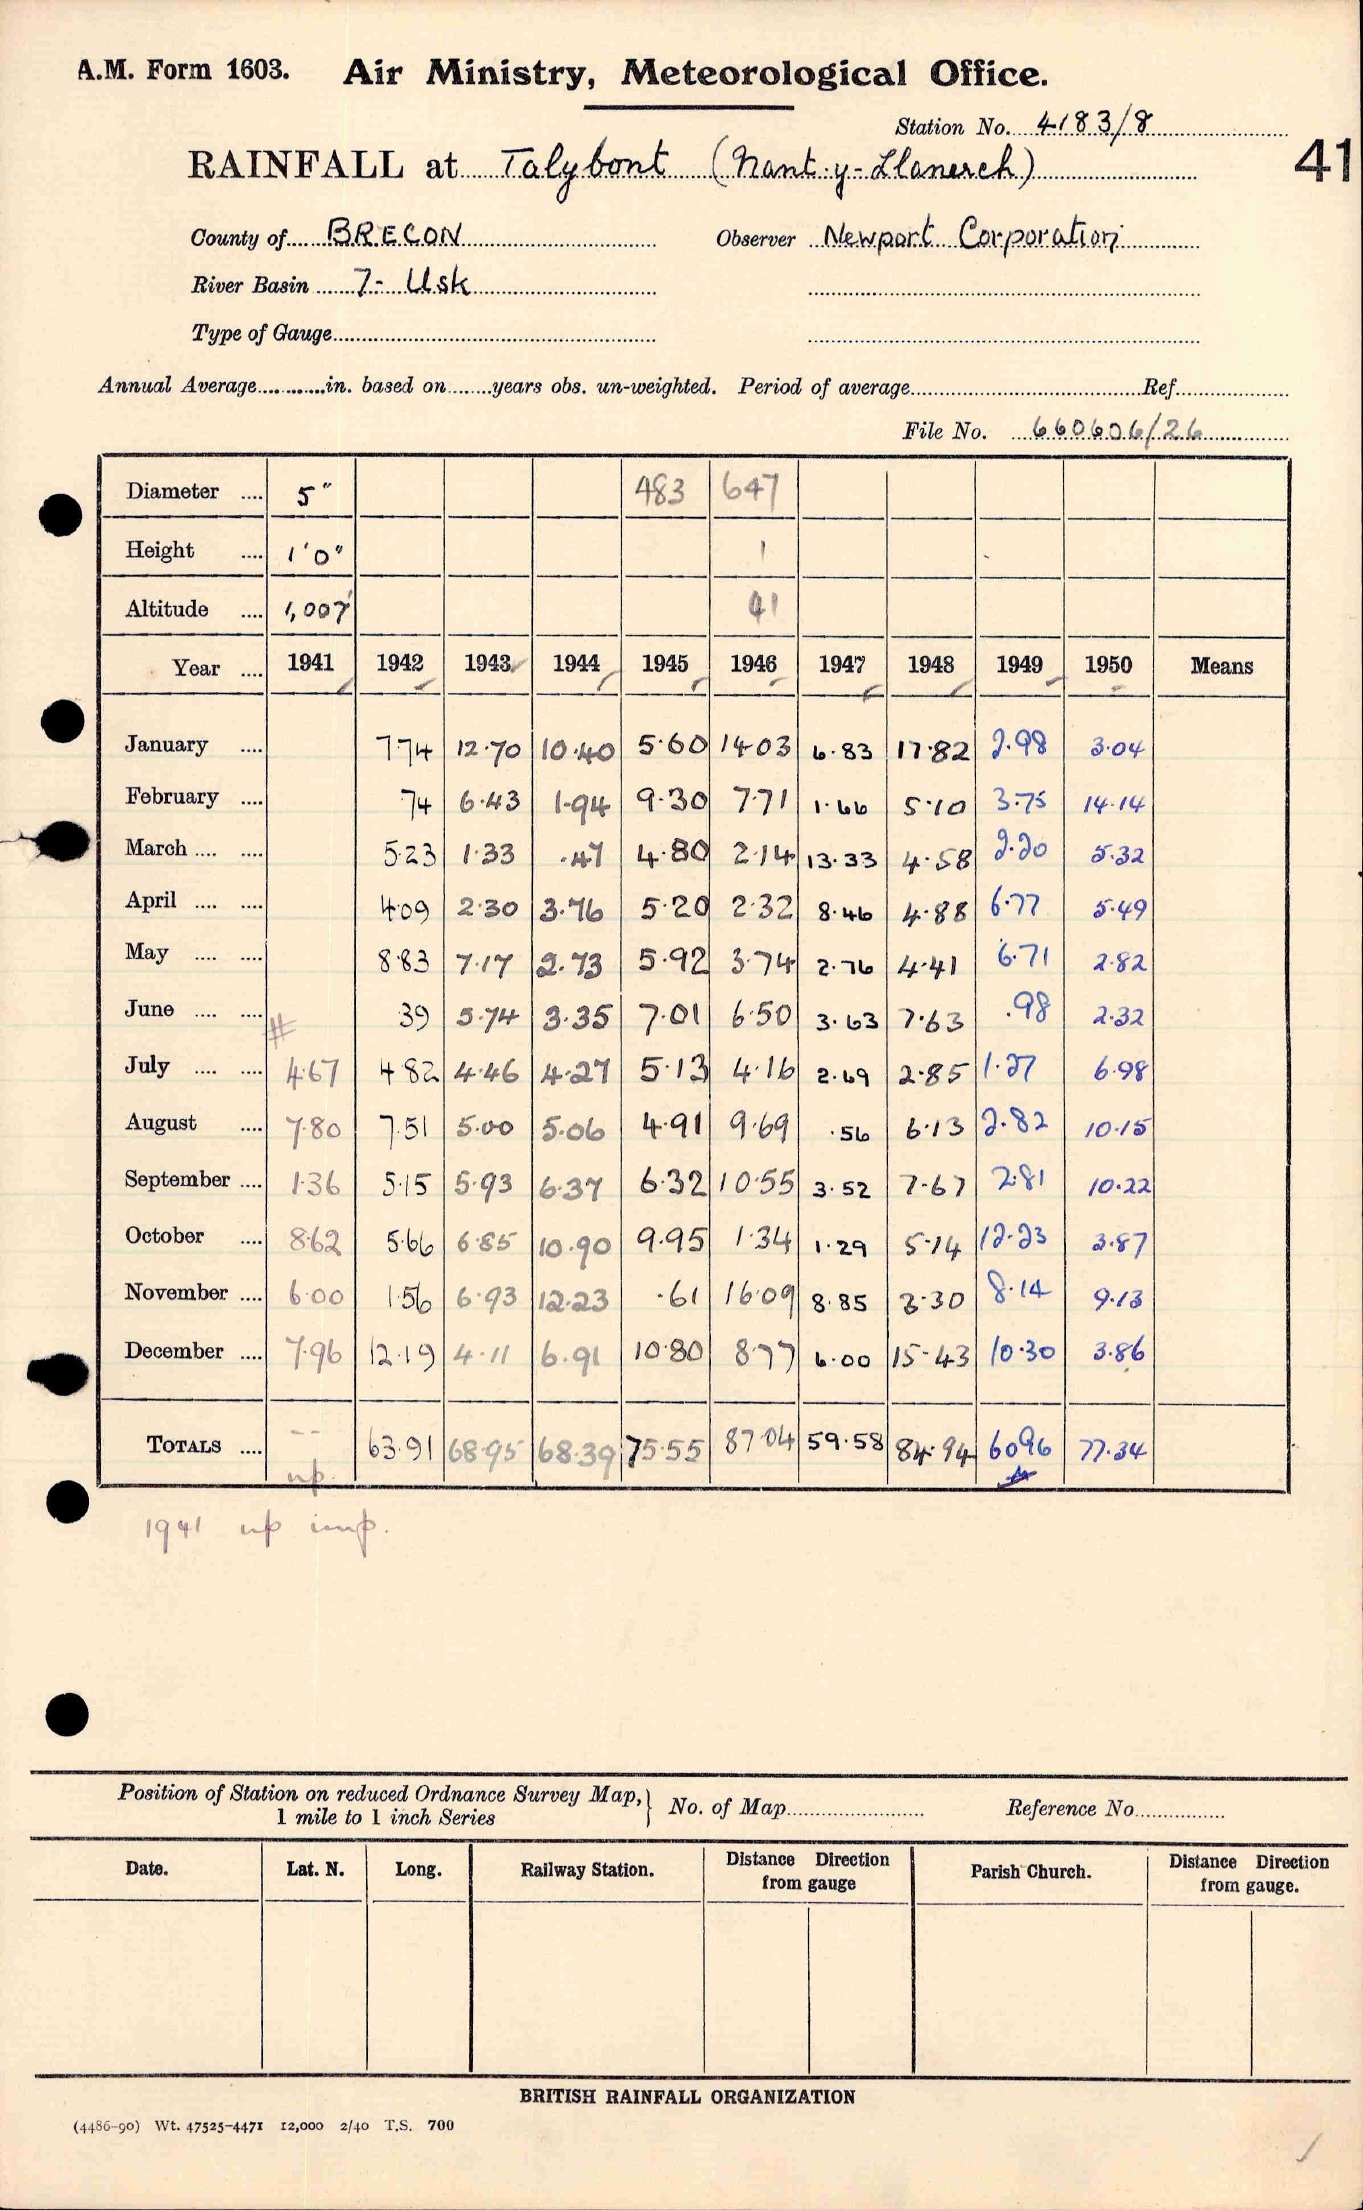 A.M. Form 1603. Air Ministry, Meteorological Office.
Station No. 4183/8
RAINFALL at Talybont (Nant-y-Llanerch)
41
County of BRECON Observer Newport Corporation
River Basin 7- Usk
Type of Gauge
Annual Average in. based on years obs. un-weighted. Period of average Ref.
File No. 660606/26
Diameter .... 5" 483 647
Height .... 1'0" 1
Altitude .... 1,007' 41
Year .... 1941 1942 1943 1944 1945 1946 1947 1948 1949 1950 Means
January .... 7.74 12.70 10.40 5.60 14.03 6.83 17.82 2.98 3.04
February .... .74 6.43 1.94 9.30 7.71 1.66 5.10 3.75 14.14
March .... .... 5.23 1.33 .47 4.80 2.14 13.33 4.58 2.20 5.32
April .... .... 4.09 2.30 3.76 5.20 2.32 8.46 4.88 6.77 5.49
May .... .... 8.83 7.17 2.73 5.92 3.74 2.76 4.41 6.71 2.82
June .... .... # .39 5.74 3.35 7.01 6.50 3.63 7.63 .98 2.32
July .... .... 4.67 4.82 4.46 4.27 5.13 4.16 2.69 2.85 1.27 6.98
August .... 7.80 7.51 5.00 5.06 4.91 9.69 .56 6.13 2.82 10.15
September .... 1.36 5.15 5.93 6.37 6.32 10.55 3.52 7.67 2.81 10.22
October .... 8.62 5.66 6.85 10.90 9.95 1.34 1.29 5.14 12.23 3.87
November .... 6.00 1.56 6.93 12.23 .61 16.09 8.85 3.30 8.14 9.13
December .... 7.96 12.19 4.11 6.91 10.80 8.77 6.00 15.43 10.30 3.86
TOTALS .... -- 63.91 68.95 68.39 75.55 87.04 59.58 84.94 60.96 77.34
up.
1941 up imp.
Position of Station on reduced Ordnance Survey Map, } No. of Map Reference No.
1 mile to 1 inch Series
Date. Lat. N. Long. Railway Station. Distance from gauge Direction Parish Church. Distance from gauge. Direction
BRITISH RAINFALL ORGANIZATION
(4486-90) Wt. 47525-4471 12,000 2/40 T.S. 700